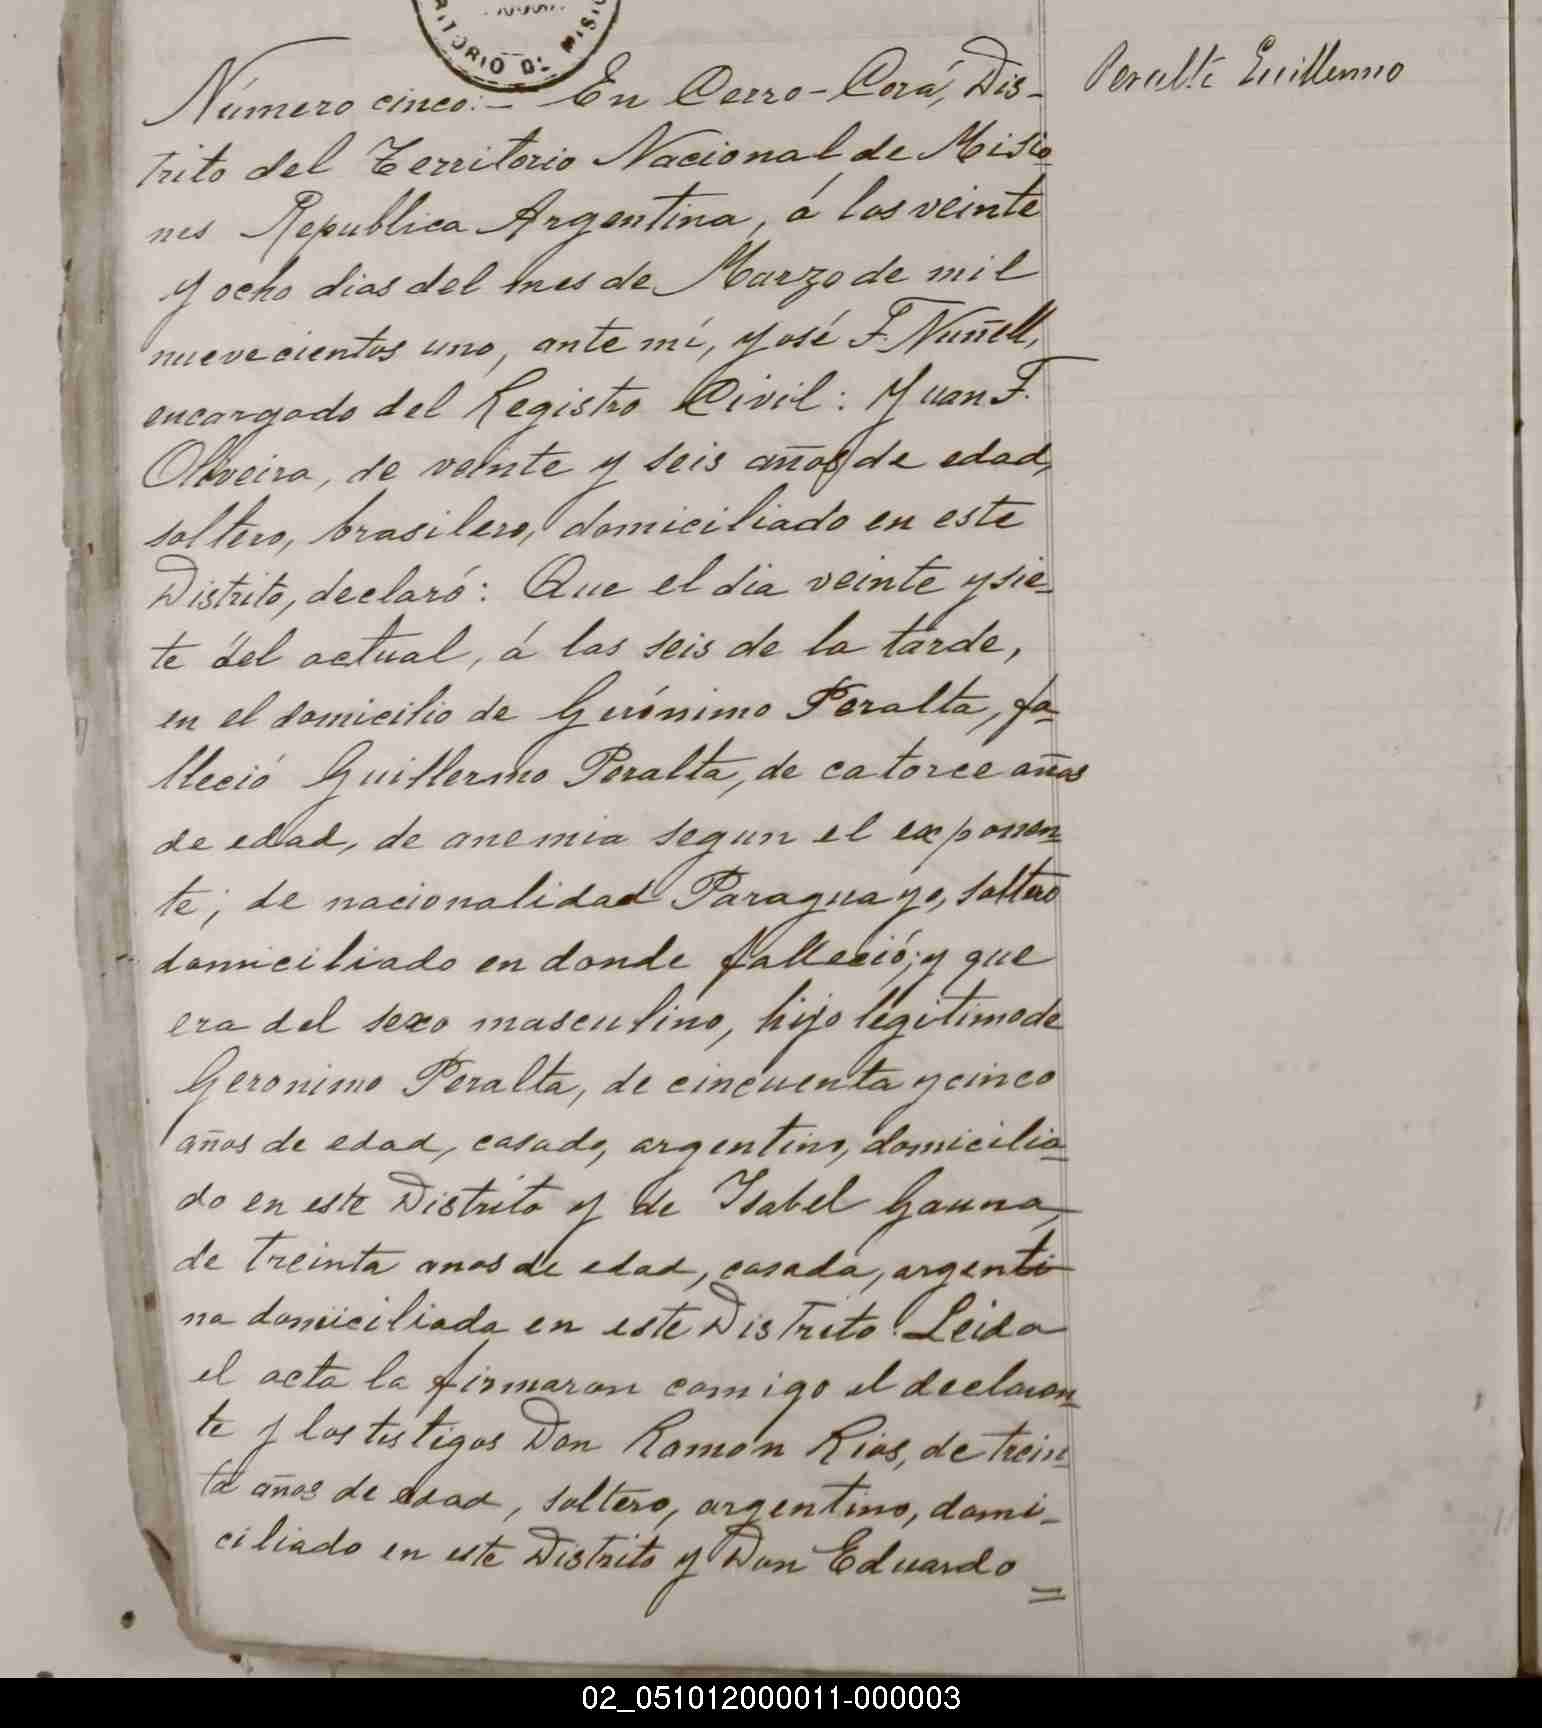 RITORIO DE MISIO
Número cinco:- En Cerro-Corá, Dis-
trito del Territorio Nacional de Misio
nes Republica Argentina, á los veinte
y ocho dias del mes de Marzo de mil
nuevecientos uno, ante mí, José F. Nuñell,
encargado del Registro Civil: Juan F.
Oliveira, de veinte y seis años de edad,
soltero, brasilero, domiciliado en este
Distrito, declaró: Que el dia veinte y sie-
te del actual, á las seis de la tarde,
en el domicilio de Gerónimo Peralta, fa-
lleció Guillermo Peralta, de catorce años
de edad, de anemia segun el exponen-
te; de nacionalidad Paraguayo, soltero
domiciliado en donde falleció; y que
era del sexo masculino, hijo legitimo de
Geronimo Peralta, de cincuenta y cinco
años de edad, casado, argentino, domicilia-
do en este Distrito y de Isabel Gauna,
de treinta anos de edad, casada, argenti-
na domiciliada en este Distrito. Leida
el acta la firmaron comigo el declaran-
te y los testigos Don Ramon Rios, de trein-
ta años de edad, soltero, argentino, domi-
ciliado en este Distrito y Don Eduardo =
Peralta Guillermo
02_051012000011-000003